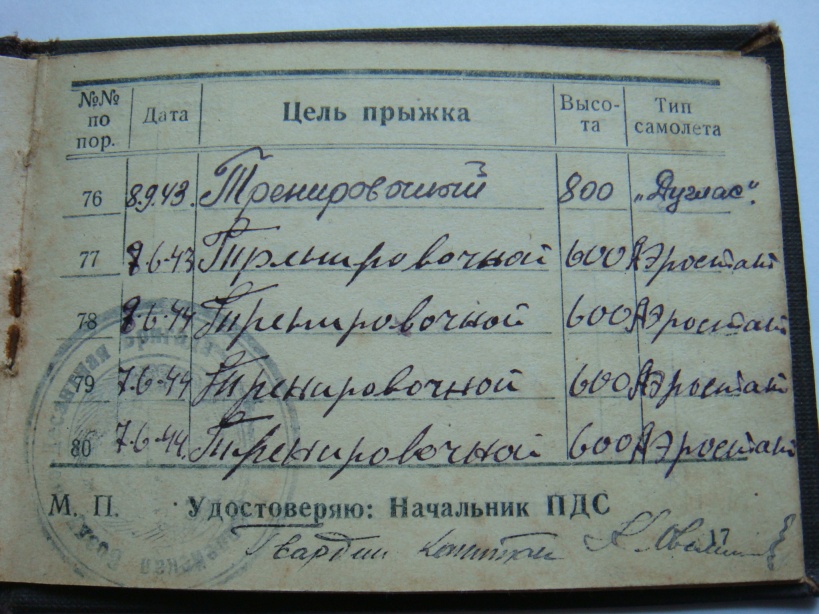 №№ по пор. Дата Цель прыжка Высо-та Тип самолета
76 8.9.43. Тренировочный 800 „Дуглас".
77 7.6-43 Тренировочной 600 Аэростат
78 7.6-44 Тренировочной 600 Аэростат
79 7.6-44 Тренировочной 600 Аэростат
80 7.6-44. Тренировочной 600 Аэростат
М. П. Удостоверяю: Начальник ПДС
Гвардии капитан